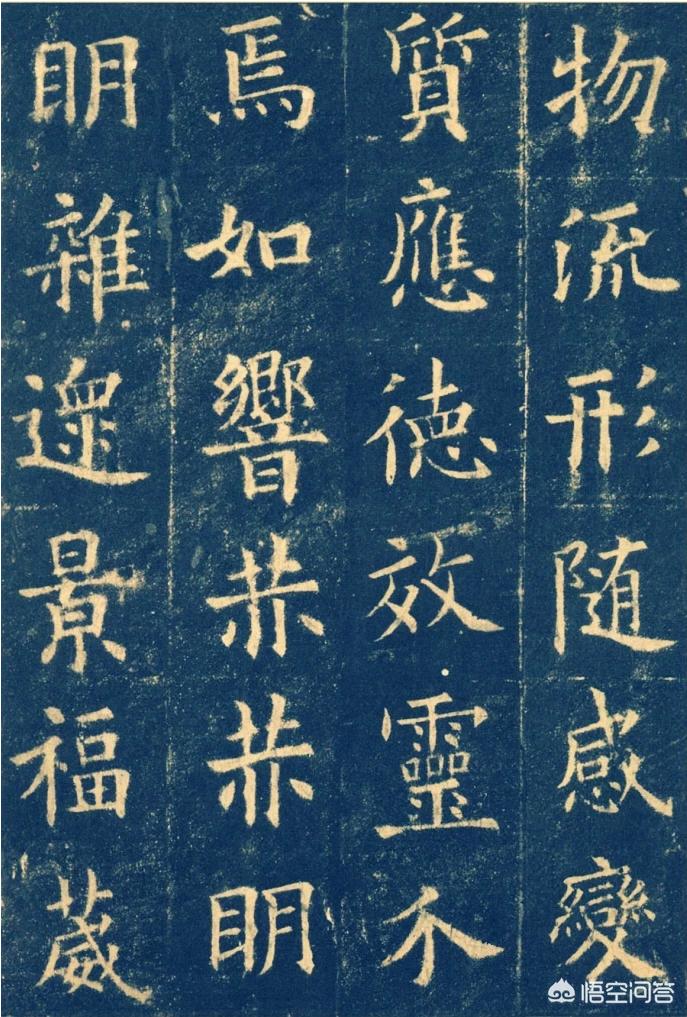 物流形随感變
質應德效靈介
焉如響赫赫明
明雜遝景福葳
悟空问答